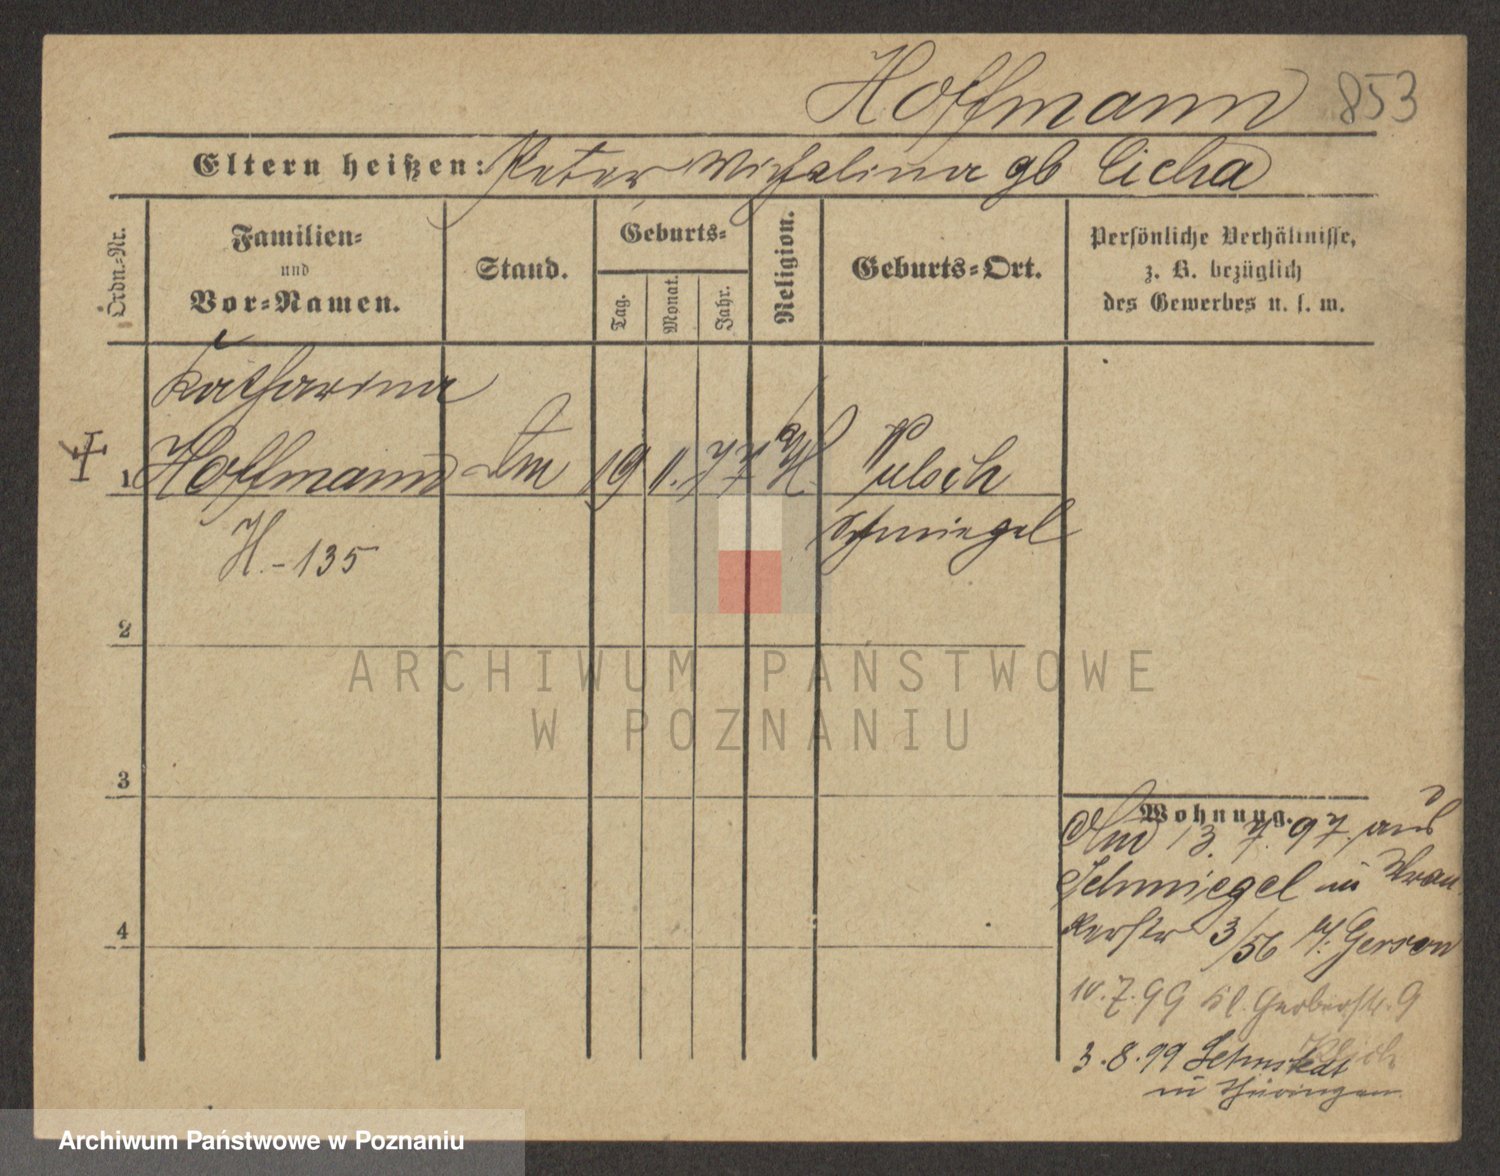 Hoffmann 853
Eltern heißen: Peter gb Cicha
Ordn.-Nr.
Familien-
und
Vor-Namen.
Stand.
Geburts-
Tag.
Monat.
Jahr.
Religion.
Geburts-Ort.
Persönliche Verhältnisse,
z. B. bezüglich
des Gewerbes u. s. w.
Katharina
1 Hoffmann 19 1. 77 k
Schmiegel
H.-135
2
3
4
Wohnung.
13. 7. 97. aus
Schmiegel in Kran
kerstr 3/56 Gerson
10.7.99 Kl. Gerberstr. 9
3.8.99
in Thüringen
ARCHIWUM PAŃSTWOWE
W POZNANIU
Archiwum Państwowe w Poznaniu